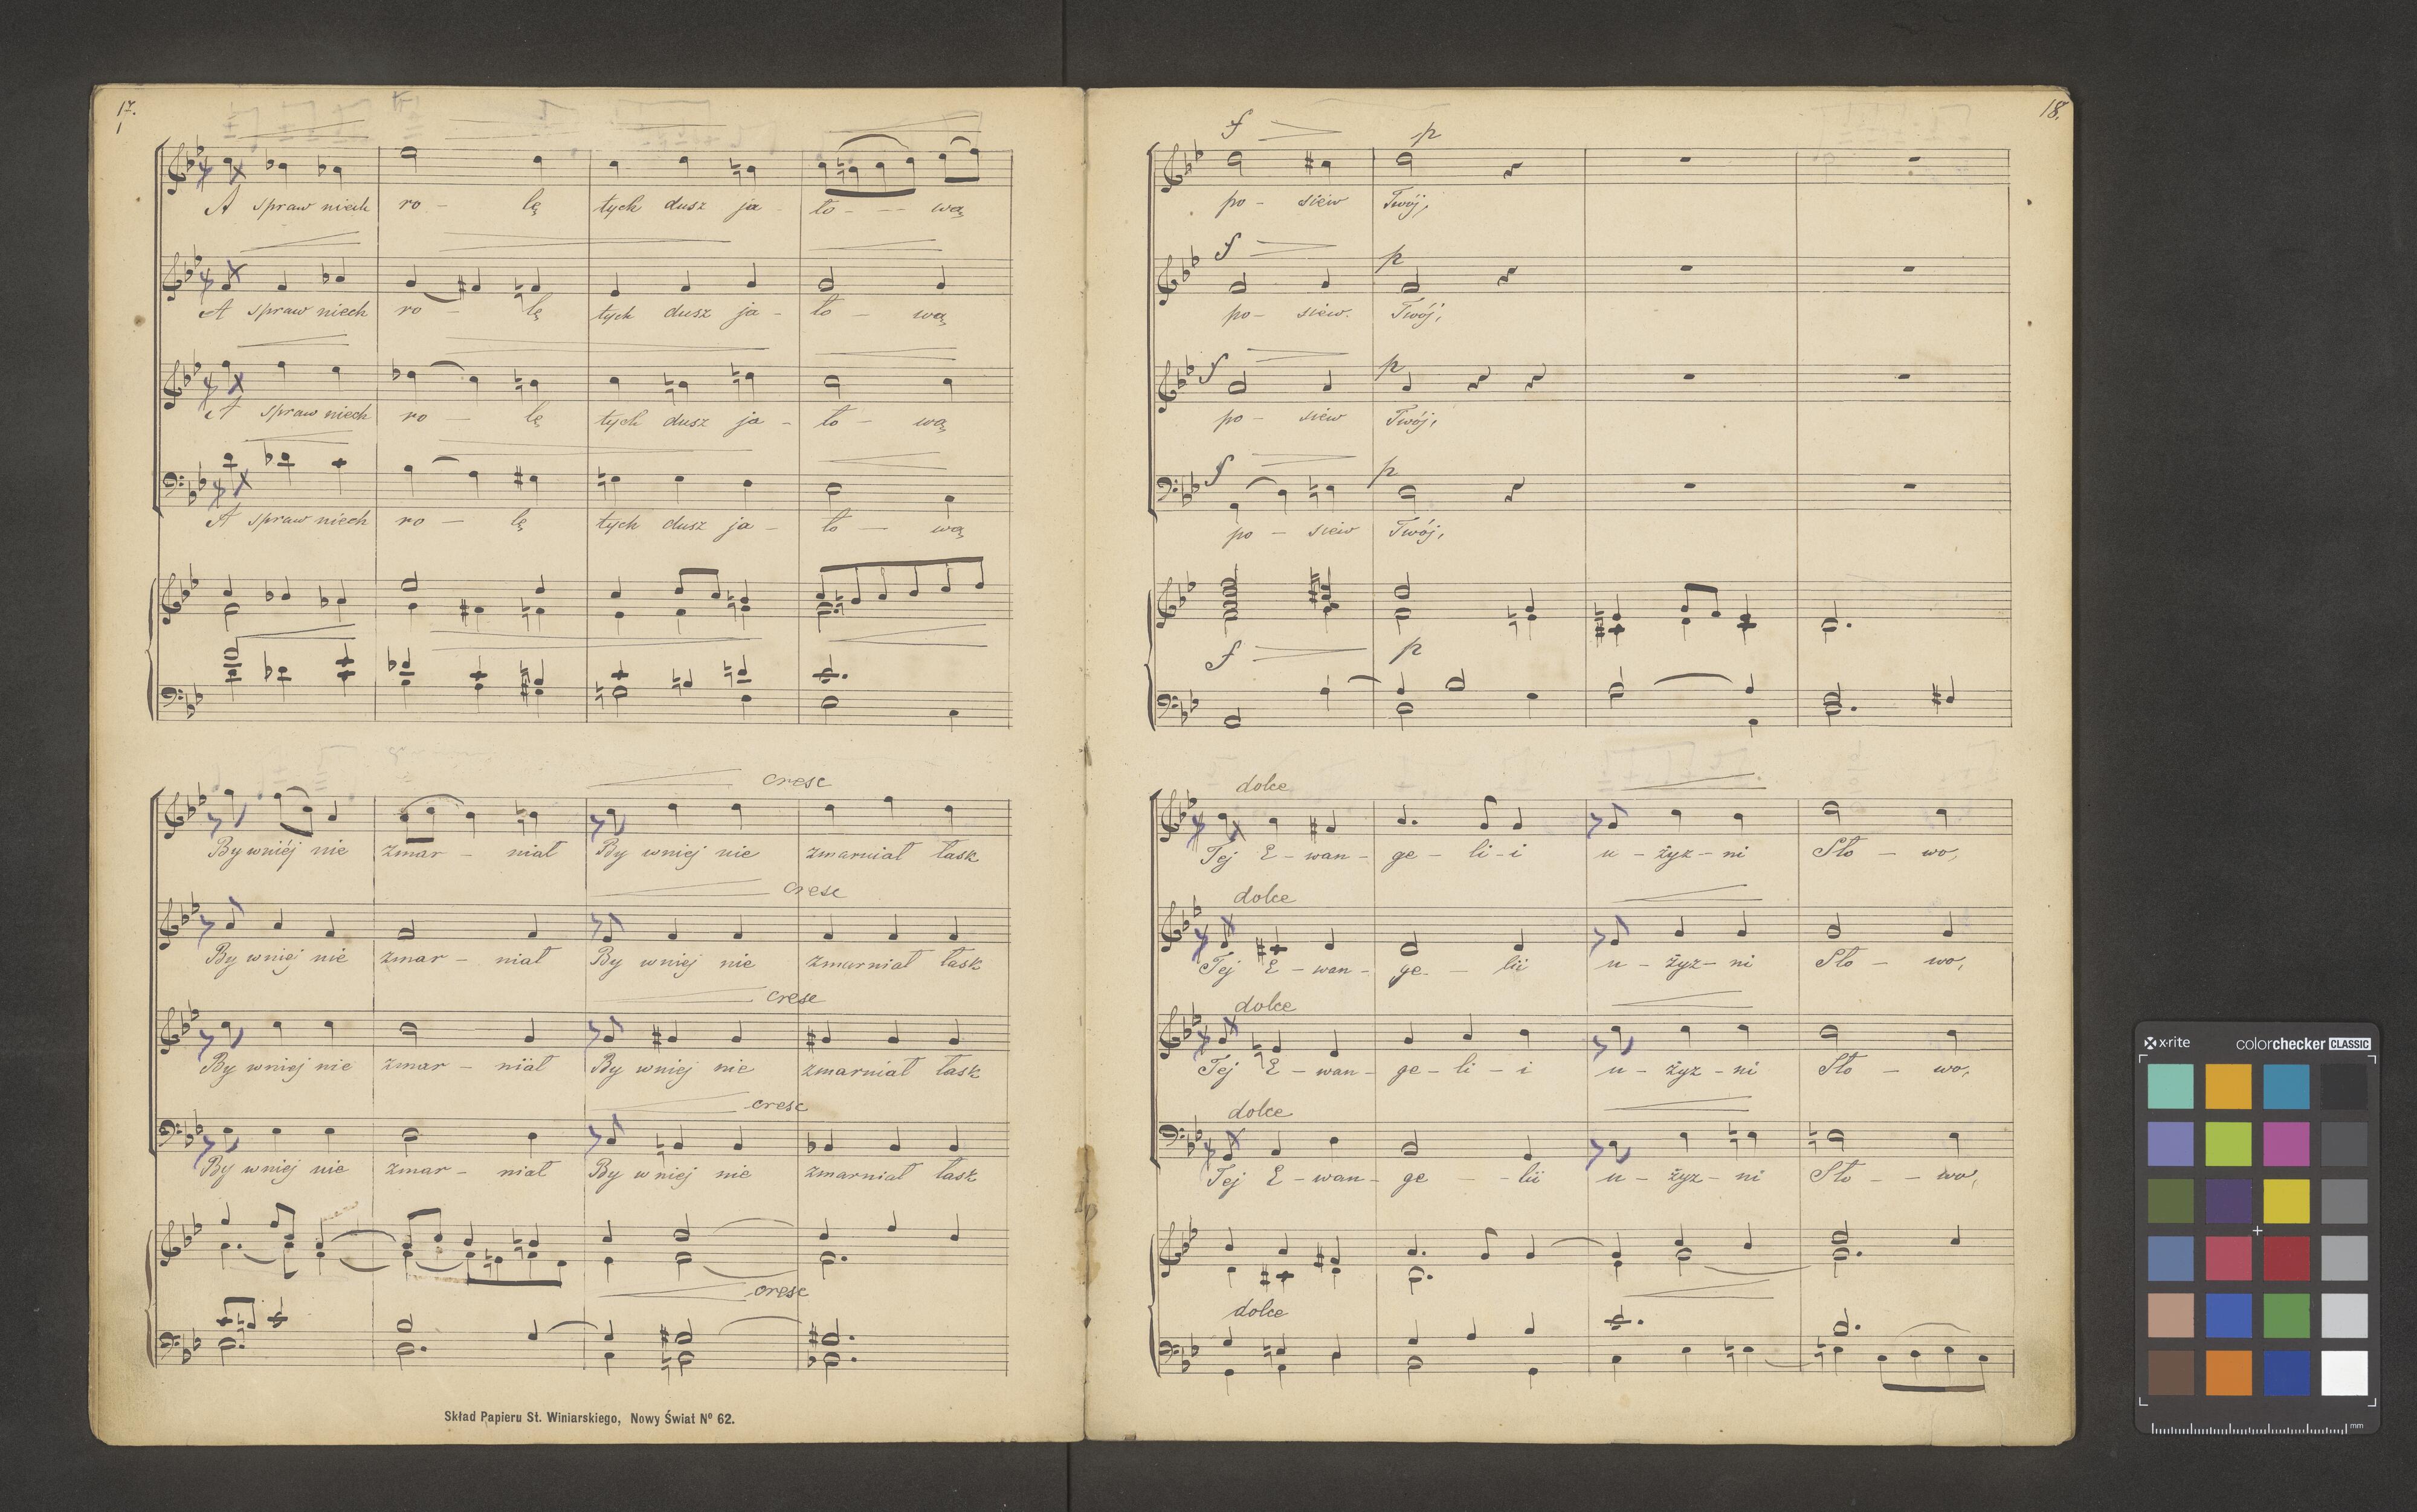 17.
A spraw niech ro - lę tych dusz ja - ło - - - wą
A spraw niech ro - lę tych dusz ja - ło - wą
A spraw niech ro - lę tych dusz ja - ło - wą
A spraw niech ro - lę tych dusz ja - ło - wą
cresc
By wniéj nie zmar - niał By wniej nie zmarniał łask
cresc
By wniej nie zmar - niał By wniej nie zmarniał łask
cresc
By wniej nie zmar - niał By wniej nie zmarniał łask
cresc
By wniej nie zmar - niał By wniej nie zmarniał łask
cresc
Skład Papieru St. Winiarskiego, Nowy Świat Nº 62.
18.
f p
po - siew Twój,
f p
po - siew. Twój,
f p
po - siew Twój,
f p
po - siew Twój,
f p
dolce
Tej E - wan - ge - li - i u - żyz - ni Sło - wo,
dolce
Tej E - wan - ge - lii u - żyz - ni Sło - wo,
dolce
Tej E - wan - ge - li - i u - żyz - ni Sło - wo,
dolce
Tej E - wan - ge - - lii u - żyz - ni Sło - - wo,
dolce
x-rite colorchecker CLASSIC
mm